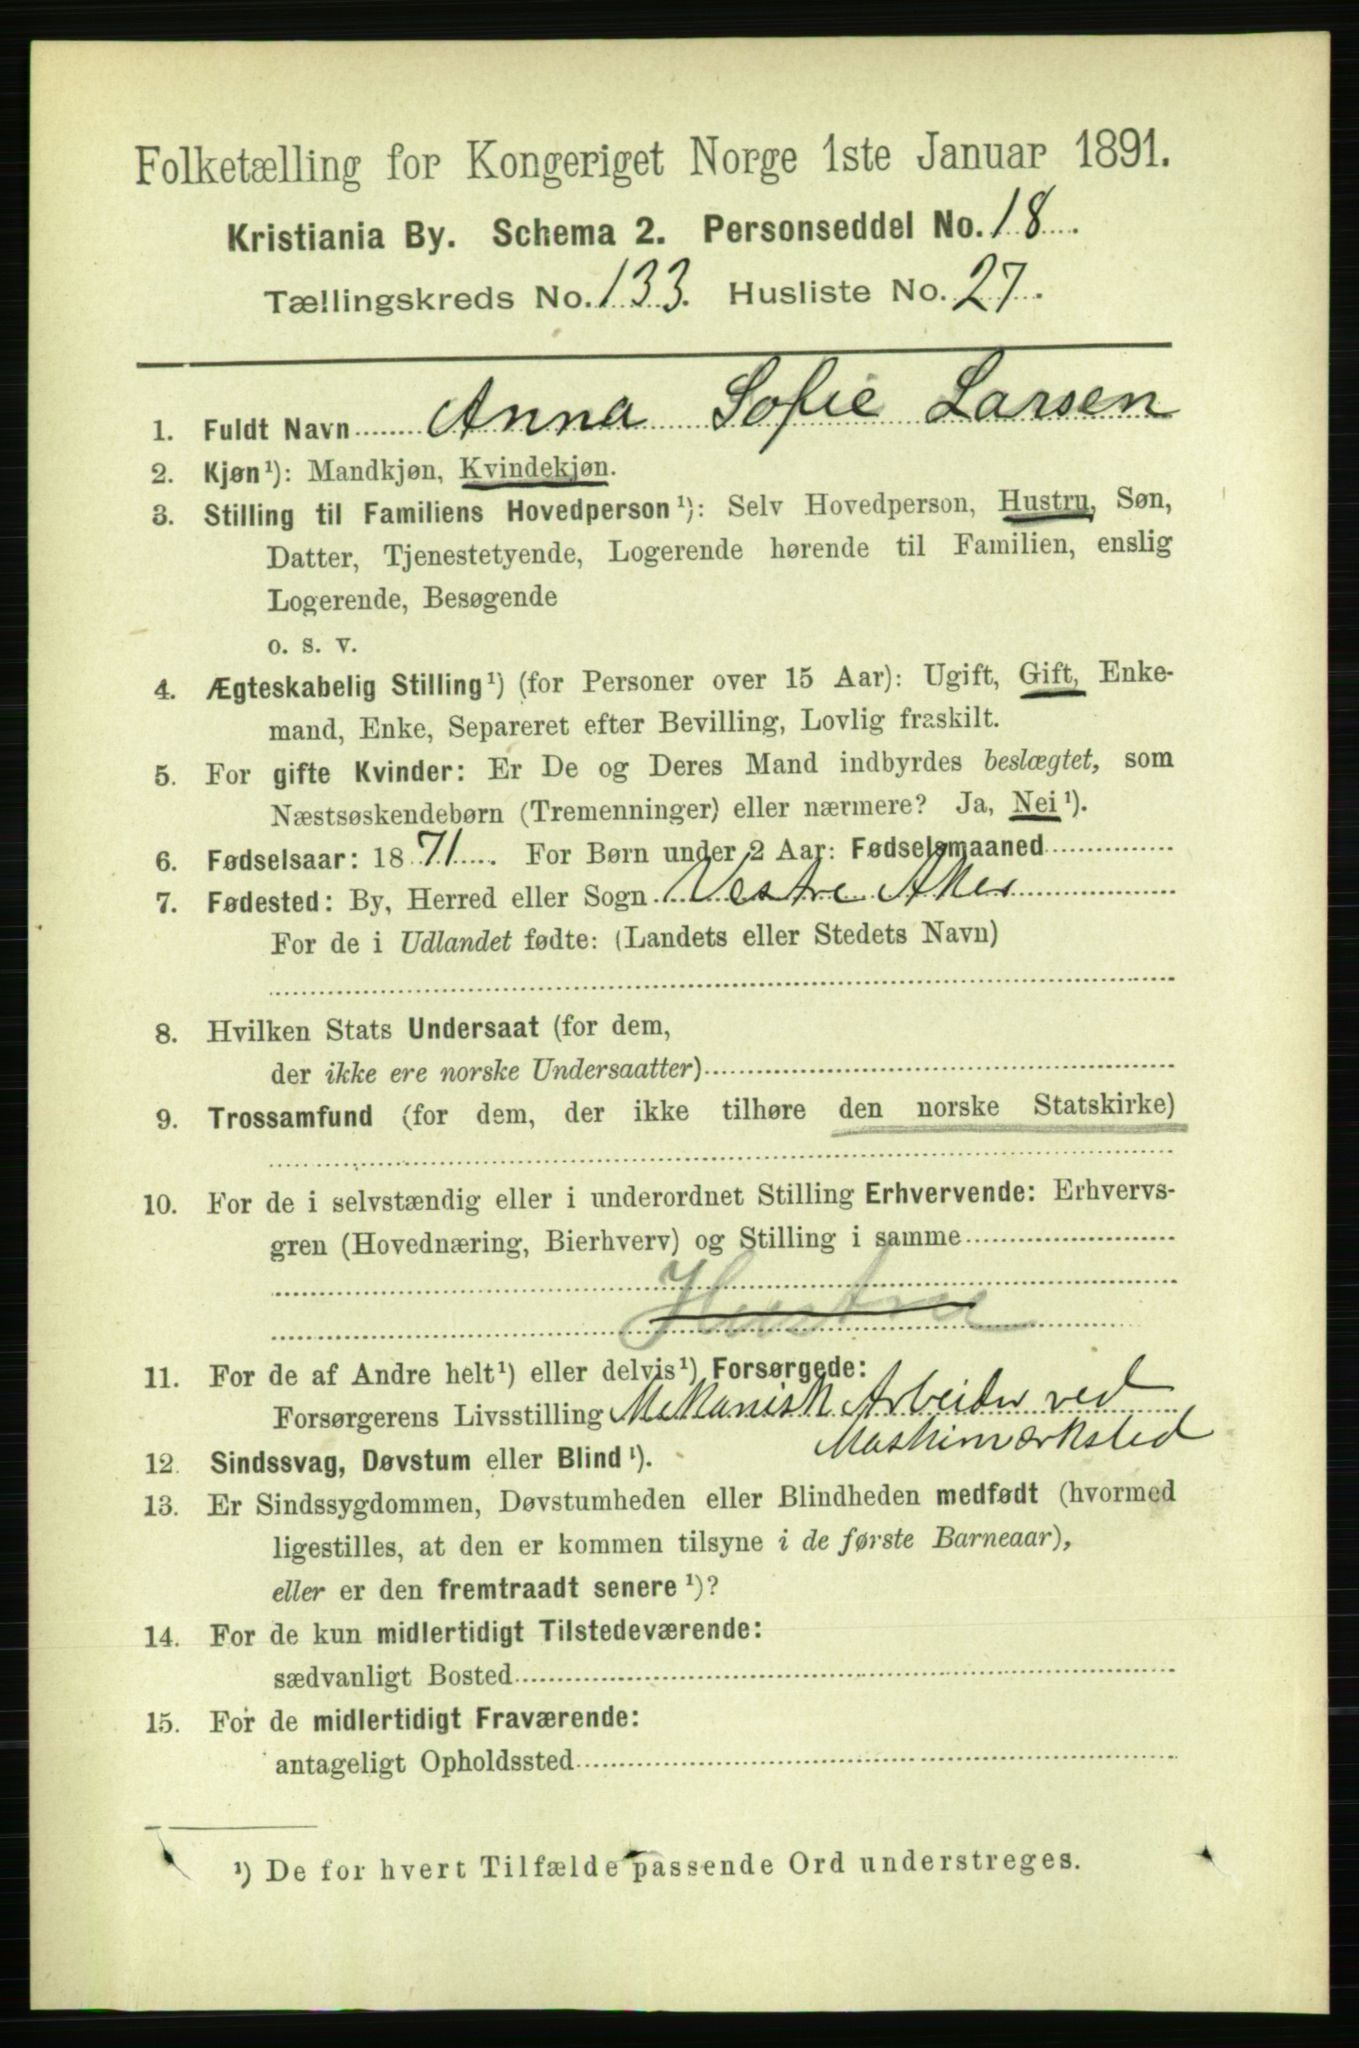 Folketælling for Kongeriget Norge 1ste Januar 1891.
Kristiania By. Schema 2. Personseddel No. 18.
Tællingskreds No. 133. Husliste No. 27.
1. Fuldt Navn Anna Sofie Larsen
2. Kjøn¹): Mandkjøn, Kvindekjøn.
3. Stilling til Familiens Hovedperson¹): Selv Hovedperson, Hustru, Søn,
Datter, Tjenestetyende, Logerende hørende til Familien, enslig
Logerende, Besøgende
o. s. v.
4. Ægteskabelig Stilling¹) (for Personer over 15 Aar): Ugift, Gift, Enke-
mand, Enke, Separeret efter Bevilling, Lovlig fraskilt.
5. For gifte Kvinder: Er De og Deres Mand indbyrdes beslægtet, som
Næstsøskendebørn (Tremenninger) eller nærmere? Ja, Nei¹).
6. Fødselsaar: 1871. For Børn under 2 Aar: Fødselsmaaned
7. Fødested: By, Herred eller Sogn Vestre Aker
For de i Udlandet fødte: (Landets eller Stedets Navn)
8. Hvilken Stats Undersaat (for dem,
der ikke ere norske Undersaatter)
9. Trossamfund (for dem, der ikke tilhøre den norske Statskirke)
10. For de i selvstændig eller i underordnet Stilling Erhvervende: Erhvervs-
gren (Hovednæring, Bierhverv) og Stilling i samme
Hustru
11. For de af Andre helt¹) eller delvis¹) Forsørgede:
Forsørgerens Livsstilling Mekanisk Arbeider ved
Maskinværksted
12. Sindssvag, Døvstum eller Blind¹).
13. Er Sindssygdommen, Døvstumheden eller Blindheden medfødt (hvormed
ligestilles, at den er kommen tilsyne i de første Barneaar),
eller er den fremtraadt senere¹)?
14. For de kun midlertidigt Tilstedeværende:
sædvanligt Bosted
15. For de midlertidigt Fraværende:
antageligt Opholdssted
¹) De for hvert Tilfælde passende Ord understreges.